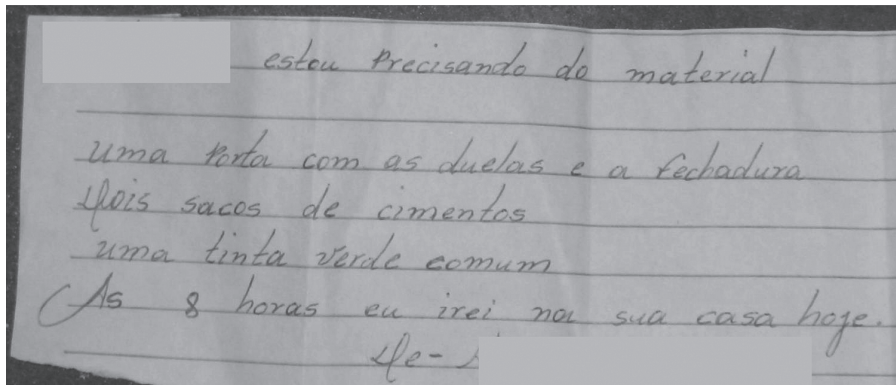 estou Precisando do material
uma Porta com as duelas e a fechadura
dois sacos de cimentos
uma tinta verde comum
As 8 horas eu irei na sua casa hoje.
De-